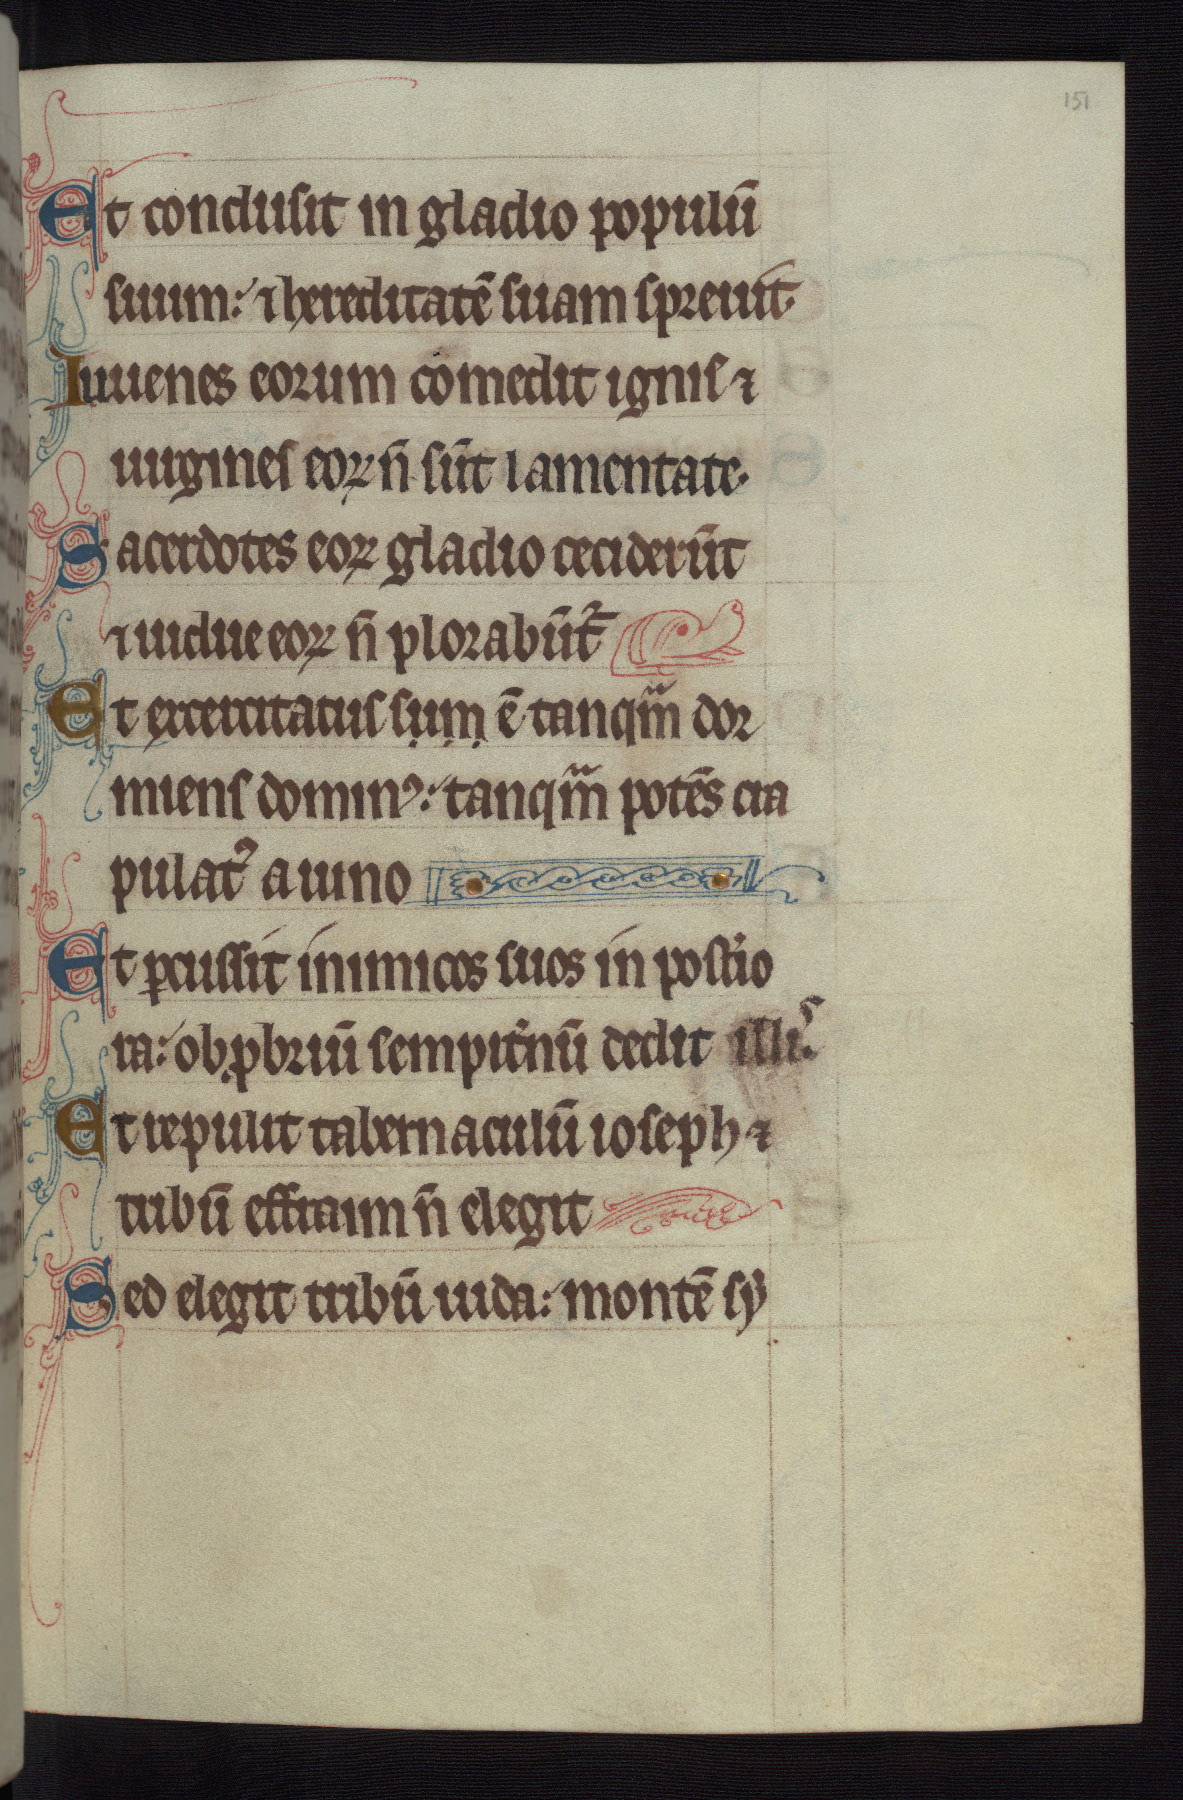 151
Et conclusit in gladio populū
suum: ⁊ hereditatē suam spreuit.
Iuuenes eorum comedit ignis ⁊
uirgines eoꝝ n̄ sūt lamentate.
Sacerdotes eoꝝ gladio ceciderūt
⁊ uidue eoꝝ n̄ plorabūt᷑
Et excercitatus sum ē tanqͫm dor
miens dominꝰ: tanqͫm potēs cra
pulatꝰ a uino
Et ꝑcussit inimicos suos in postio
ra: obꝓbriū sempit̾nū dedit illis.
Et repulit tabernaculū ioseph ⁊
tribū effraim n̄ elegit
Sed elegit tribū iuda: montē sy